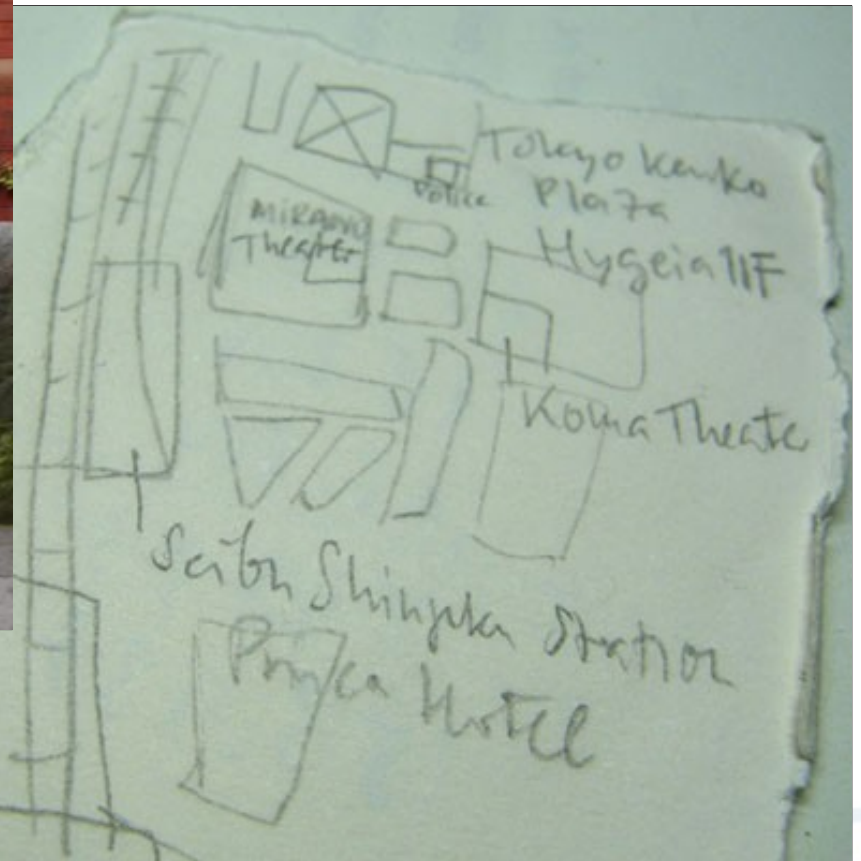 Tokyo Kenko
Plaza
Hygeia 11F
Police
MIRANO
Theater
Koma Theate
Seibu Shinjuku Station
Prince Hotel